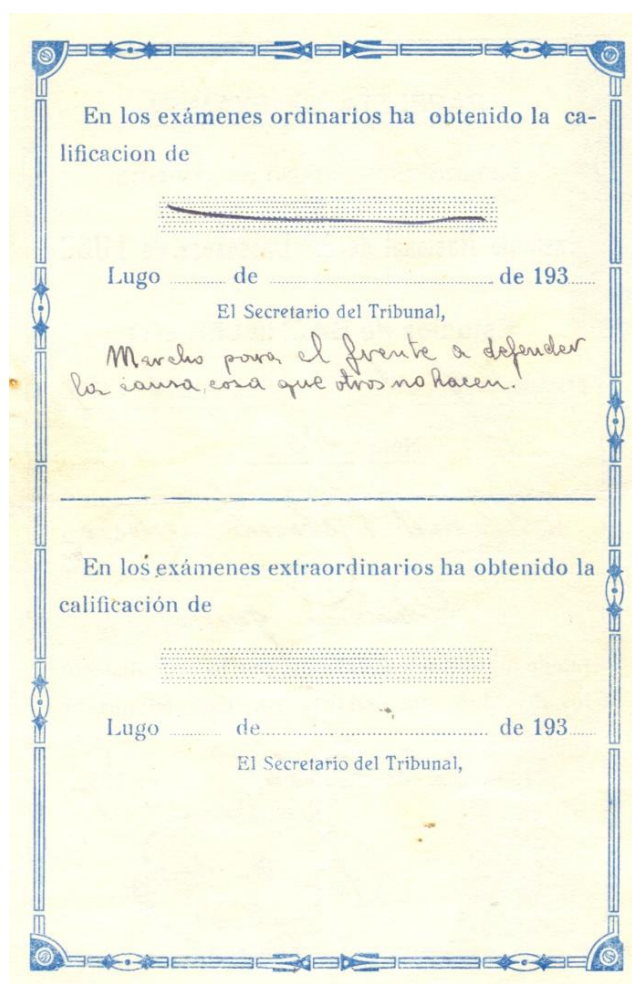 En los exámenes ordinarios ha obtenido la ca-
lificacion de
Lugo ........ de ........................ de 193......
El Secretario del Tribunal,
Marcho para el frente a defender
la causa, cosa que otros no hacen.
En los exámenes extraordinarios ha obtenido la
calificación de
Lugo ........ de ........................ de 193......
El Secretario del Tribunal,